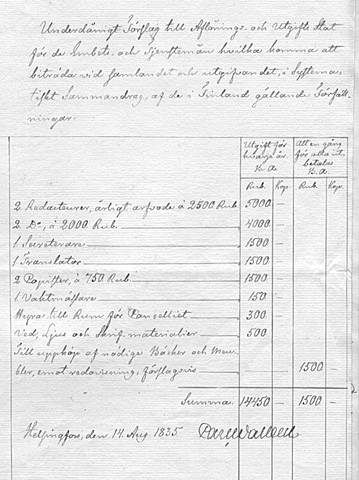 Underdånigt Förslag till Aflönings- och Utgifts Stat
för de Embets- och Tjenstemän hvilka komma att
biträda vid samlandet och utgifvandet, i Systema-
tiskt Sammandrag, af de i Finland gällande Författ-
ningar.
Utgift för hvarje år. B.A. Att en gång för alla ut- betalas B.A.
Rub. Kop. Rub. Kop.
2 Redacteurer, årligt arfvode à 2500 Rub. 5000 –
2 Do, à 2000 Rub. 4000 –
1 Secreterare 1500 –
1 Translator 1500 –
2 Copister, à 750 Rub. 1500 –
1 Vaktmästare 150 –
Hyra till Rum för Cancelliet 300 –
Ved, Ljus och Skrif-materialier 500
Till uppköp af nödige Böcker och Meu-
bler, emot redovisning, förslagsvis 1500 –
Summa: 14450 – 1500 –
Helsingfors, den 14. Aug. 1835 Carl Walleen